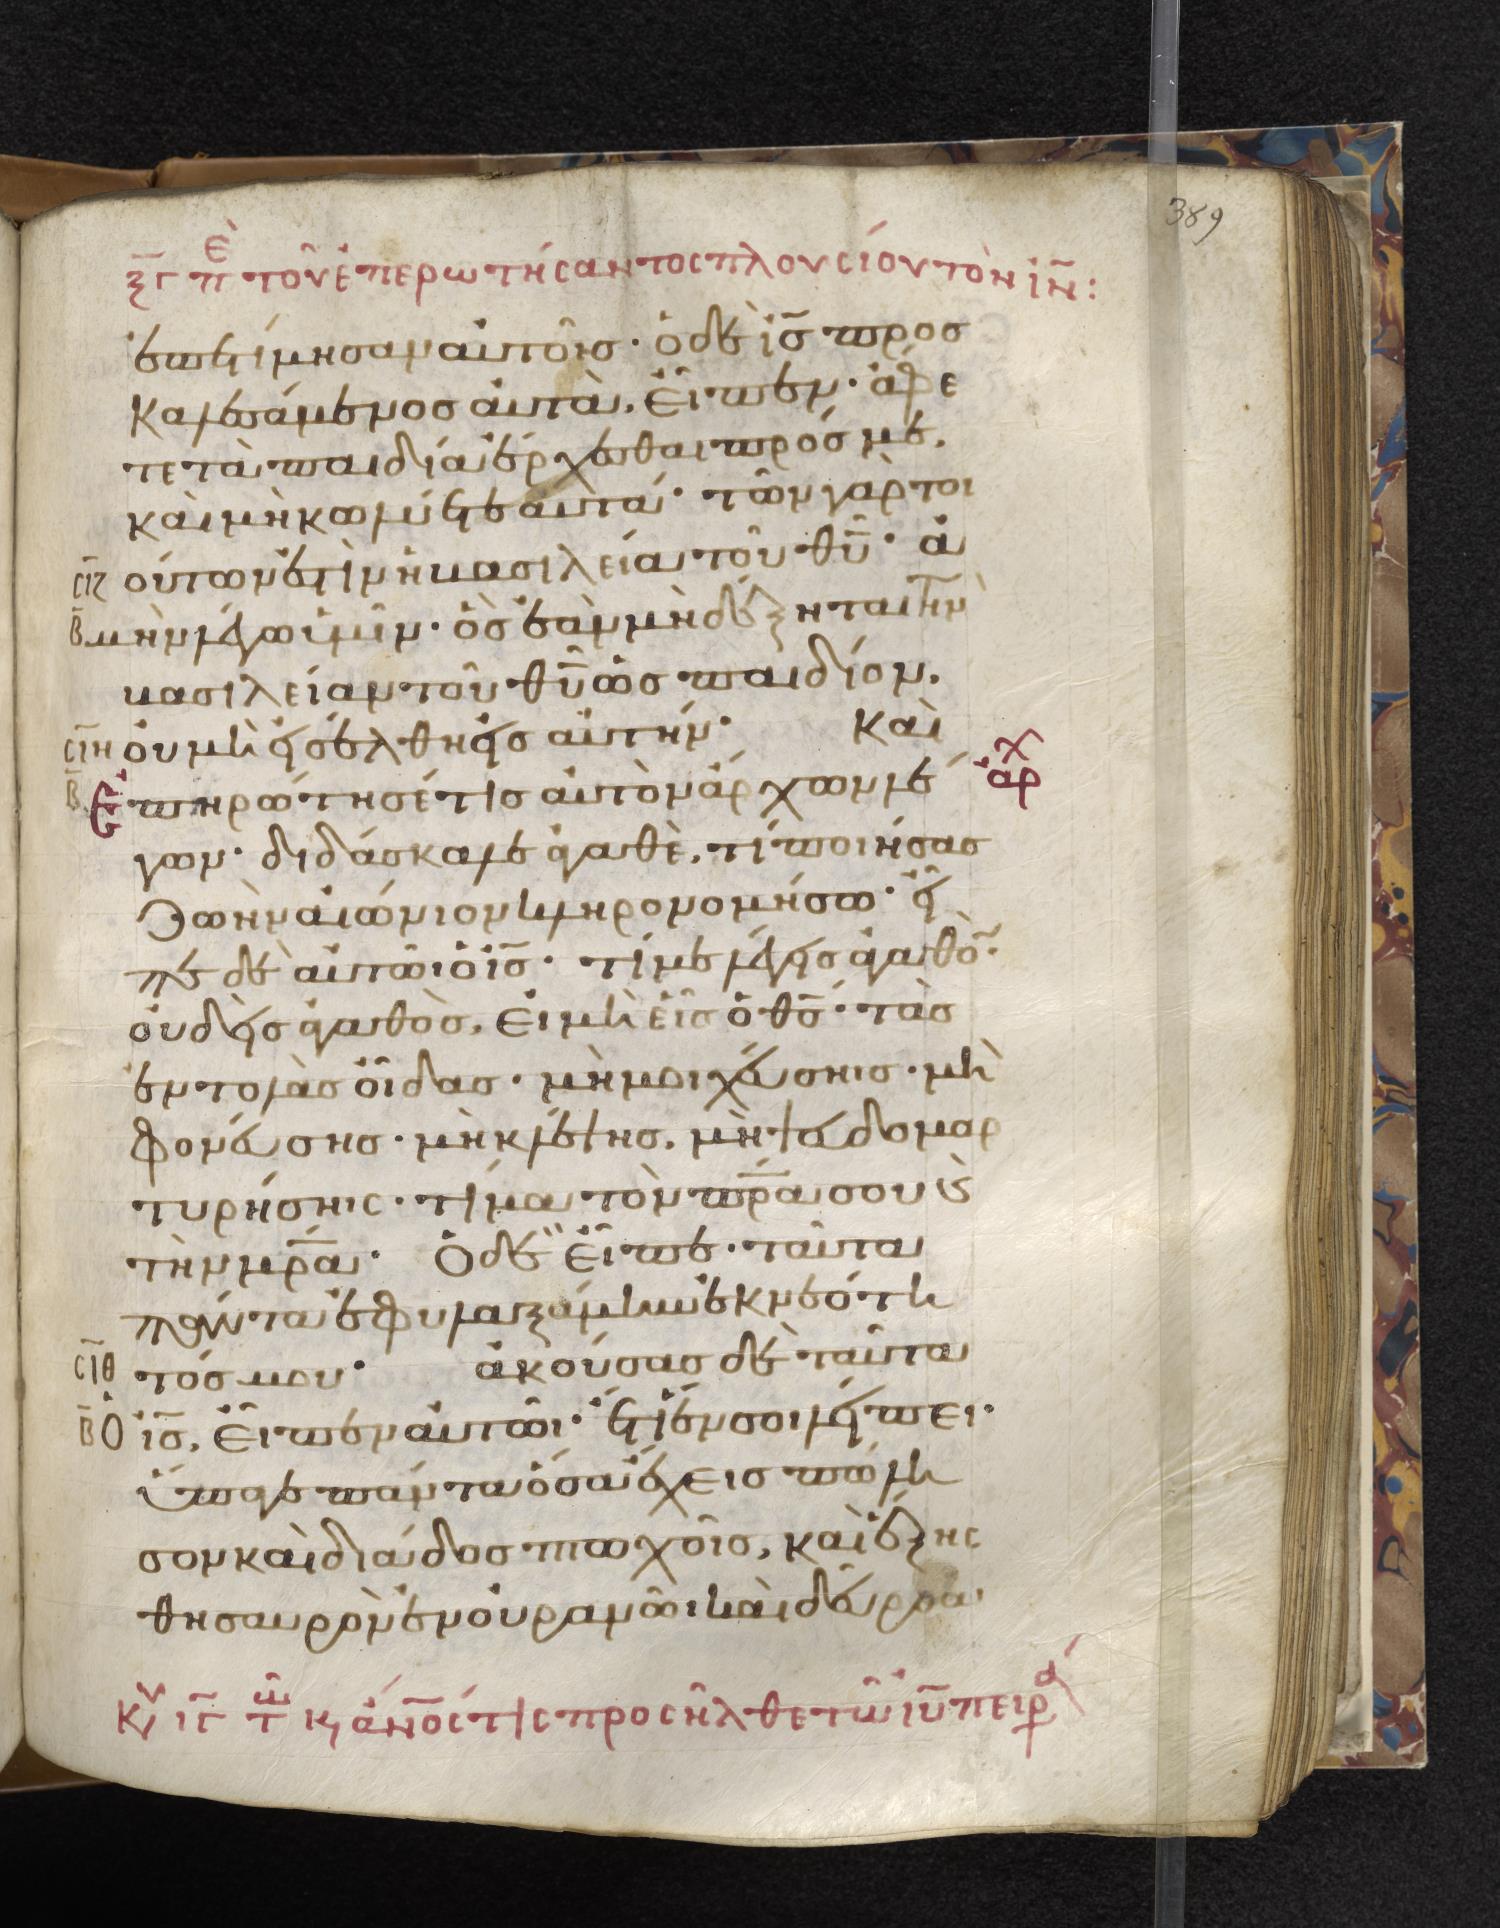 389
ξ̅γ̅ πὲ τοῦ ἐπερωτήσαντος πλουσίου τὸν ἰ̅ν̅:
ἐπετίμησαν αὐτοῖσ· ὁ δὲ ἰ̅σ̅ προσ
καλεσάμενοσ αὐτὰ, εἶπεν· ἄφε
τε τὰ παιδία ἔρχεσθαι πρόσ με,
καὶ μὴ κωλύετε αὐτά· τῶν γὰρ τοι
σ̅ι̅ζ̅ ούτων ἐστὶν ἡ βασιλεία τοῦ θ̅υ̅· ἀ
β̅ μὴν λέγω ὑμῖν· ὃσ ἐὰν μὴ δέξηται τὴν
βασιλείαν τοῦ θ̅υ̅ ὡσ παιδίον,
σ̅ι̅η̅ οὐ μὴ εἰσέλθη εἰσ αὐτήν· Καὶ
β̅ Ἐπηρώτησέ τισ αὐτὸν ἄρχων λέ ἀρχ
γων· διδάσκαλε ἀγαθὲ, τί ποιήσασ
ζωὴν αἰώνιον κληρονομήσω· εἶ
πε δὲ αὐτῶι ὁ ἰ̅σ̅· τί με λέγεισ ἀγαθὸν·
οὐδεὶσ ἀγαθὸσ, εἰ μὴ εἷσ ὁ θ̅σ̅· τὰσ
ἐντολὰσ οἶδασ· μὴ μοιχεύσηισ· μὴ
φονεύσησ· μὴ κλέψησ, μὴ ψευδομαρ
τυρήσηισ· τίμα τὸν π̅ρ̅α σου ϗ
τὴν μ̅ρ̅α· Ὁ δὲ εἶπε· ταῦτα
πάντα ἐφυλαξάμην ἐκ νεότη
σ̅ι̅θ̅ τόσ μου· ἀκούσασ δὲ ταῦτα
β̅ Ὁ ἰ̅σ̅, εἶπεν αὐτῶι· ἔτι ἕν σοι λείπει·
ὕπαγε πάντα ὅσα ἔχεισ πώλη
σον καὶ διάδοσ πτωχοῖσ, καὶ ἕξησ
θησαυρὸν ἐν οὐρανῶι καὶ δεῦρο ἀ
Κυ ι̅γ̅ τῶ κ ἀ̅ν̅ο̅ς τις προσῆλθε τῶ ἰ̅υ̅ πειρά